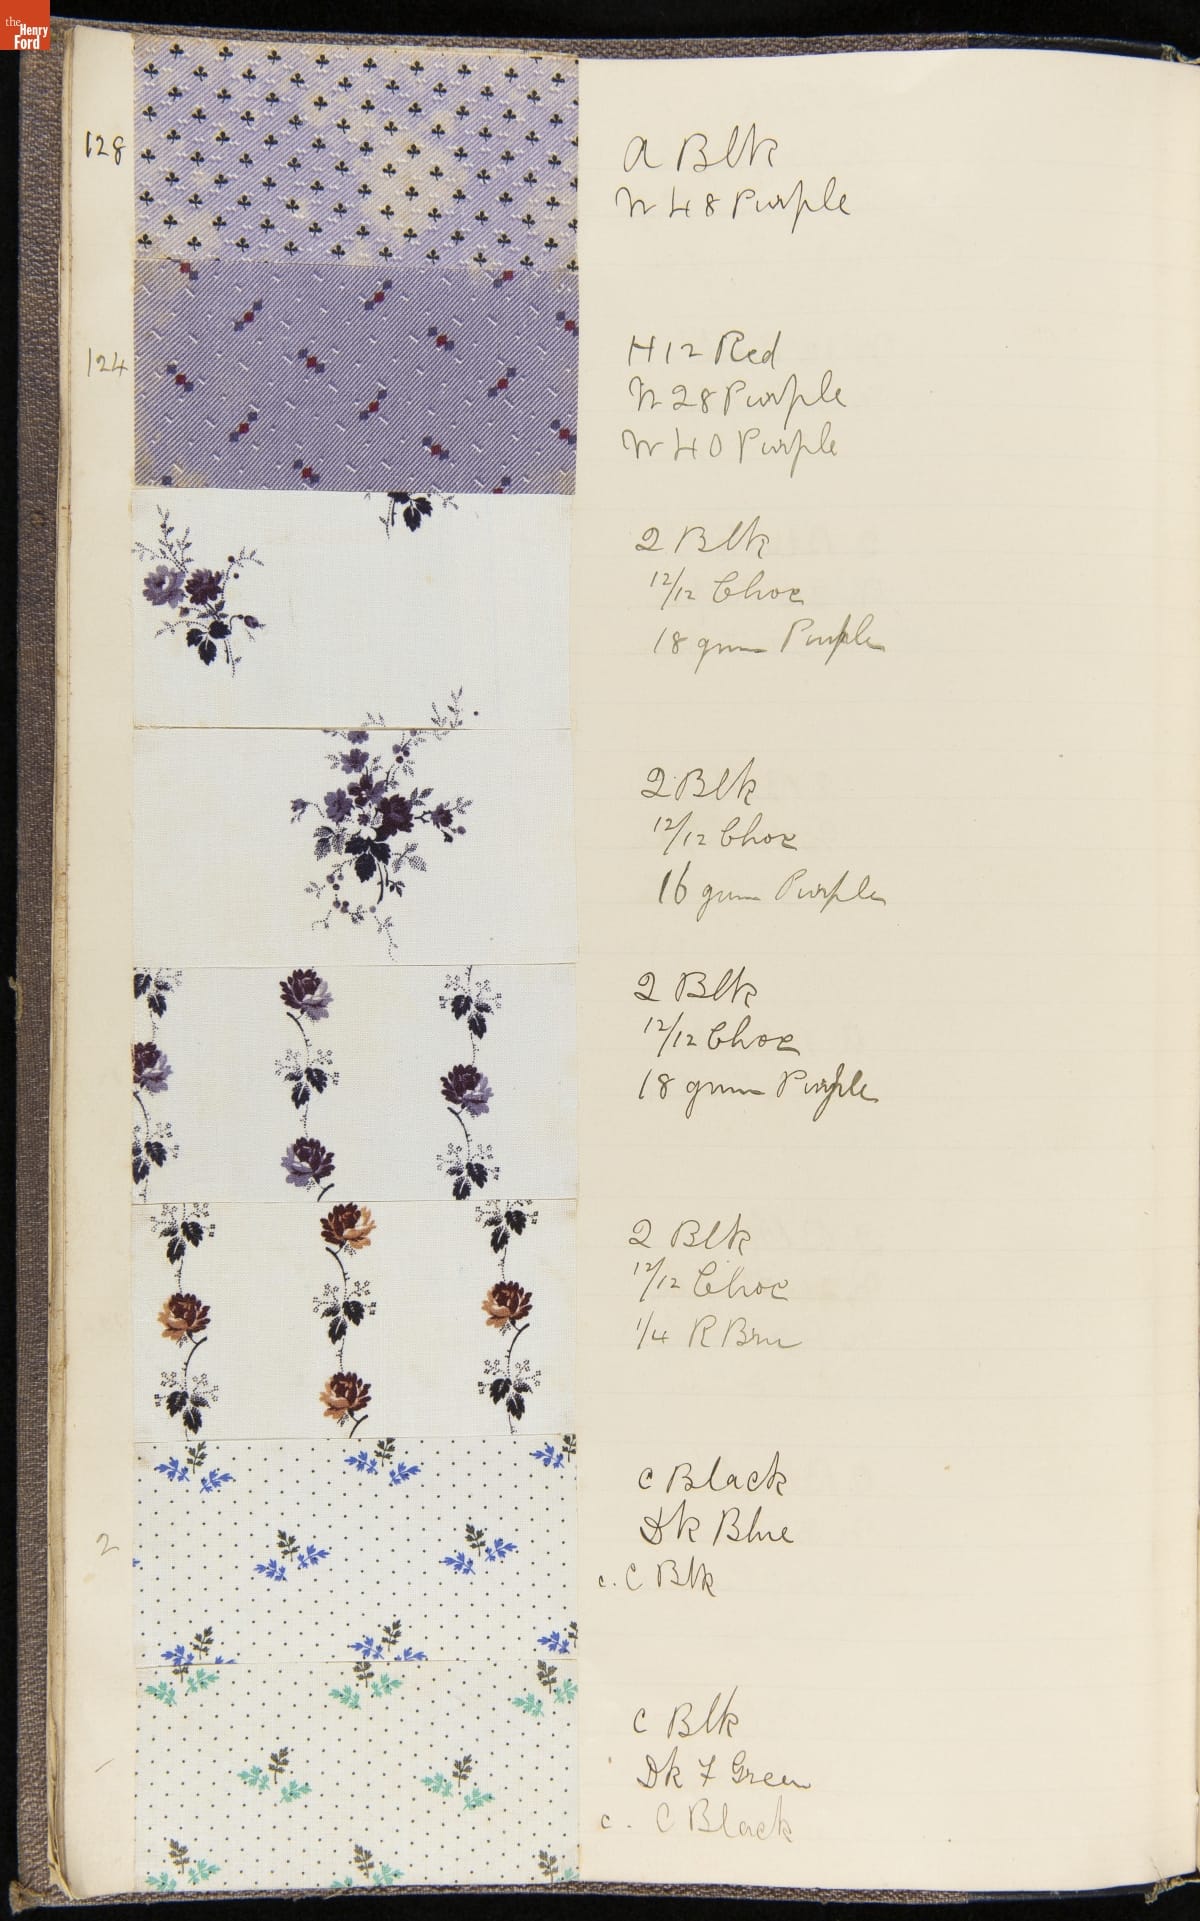 the
Henry
Ford
128
a Blk
N 48 Purple
124
H 12 Red
N 28 Purple
N 40 Purple
2 Blk
12/12 Choc
18 gum Purple
2 Blk
12/12 Choc
16 gum Purple
2 Blk
12/12 Choc
18 gum Purple
2 Blk
12/12 Choc
1/4 R Brn
c Black
2
Dk Blue
c. C Blk
c Blk
Dk F Green
c. C Black